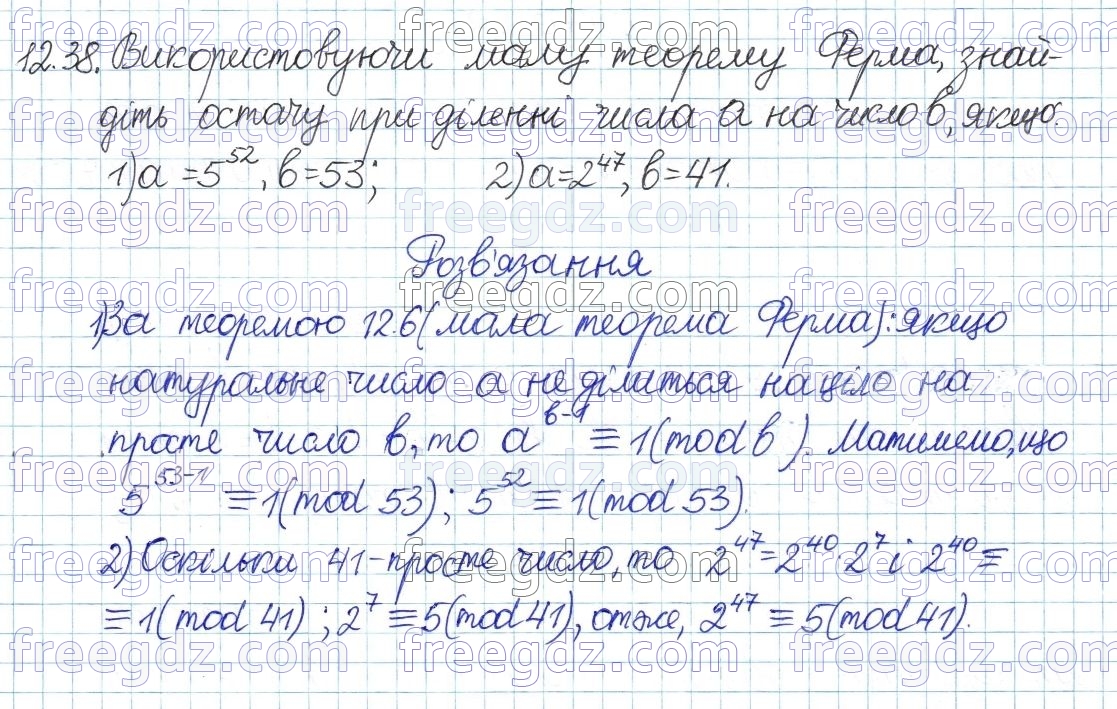 12.38. Використовуючи малу теорему Ферма, знай-
діть остачу при діленні числа a на число b, якщо:
1) a = 5^52, b = 53; 2) a = 2^47, b = 41.
Розв'язання
1) За теоремою 12.6 (мала теорема Ферма): якщо
натуральне число a не ділиться націло на
просте число b, то a^(b-1) ≡ 1(mod b). Матимемо, що
5^(53-1) ≡ 1(mod 53); 5^52 ≡ 1(mod 53).
2) Оскільки 41 - просте число, то 2^47 = 2^40 · 2^7 і 2^40 ≡
≡ 1(mod 41); 2^7 ≡ 5(mod 41), отже, 2^47 ≡ 5(mod 41).
freegdz.com